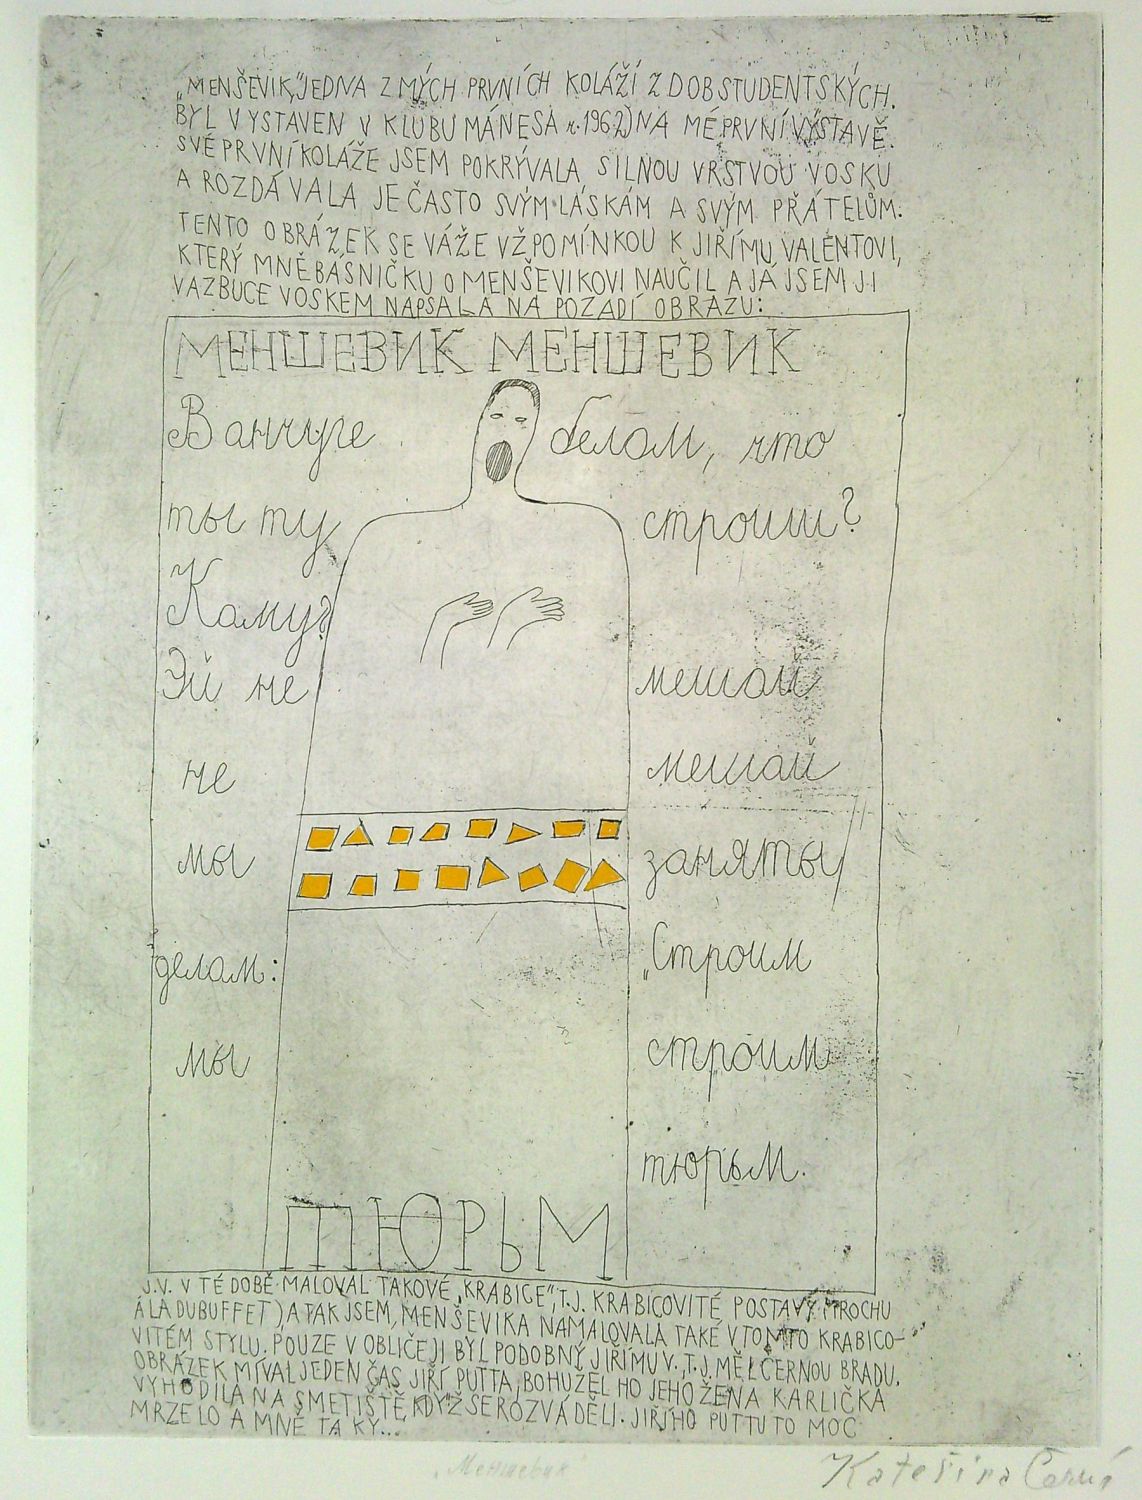 „MENŠEVIK", JEDNA Z MÝCH PRVNÍCH KOLÁŽÍ Z DOB STUDENTSKÝCH.
BYL VYSTAVEN V KLUBU MÁNESA r. 1962) NA MÉ PRVNÍ VÝSTAVĚ.
SVÉ PRVNÍ KOLÁŽE JSEM POKRÝVALA SILNOU VRSTVOU VOSKU
A ROZDÁVALA JE ČASTO SVÝM LÁSKÁM A SVÝM PŘÁTELŮM.
TENTO OBRÁZEK SE VÁŽE VŽPOMÍNKOU K JIŘÍMU VALENTOVI,
KTERÝ MNĚ BÁSNIČKU O MENŠEVIKOVI NAUČIL A JÁ JSEM JI
V AZBUCE VOSKEM NAPSALA NA POZADÍ OBRAZU:
МЕНШЕВИК МЕНШЕВИК
В анчуге белом, что
ты ту строиш?
Кому?
Эй не мешай
не мешай
мы заняты
делом: „Строим
мы строим
тюрьм.
ТЮРЬМ
J.V. V TÉ DOBĚ MALOVAL TAKOVÉ „KRABICE", T.J. KRABICOVITÉ POSTAVY (TROCHU
Á LA DUBUFFET) A TAK JSEM MENŠEVIKA NAMALOVALA TAKÉ V TOMTO KRABICO-
VITÉM STYLU. POUZE V OBLIČEJI BYL PODOBNÝ JIŘÍMU V., T.J. MĚL ČERNOU BRADU.
OBRÁZEK MÍVAL JEDEN ČAS JIŘÍ PUTTA, BOHUŽEL HO JEHO ŽENA KARLIČKA
VYHODILA NA SMETIŠTĚ, KDYŽ SE ROZVÁDĚLI. JIŘÍHO PUTTU TO MOC
MRZELO A MNĚ TAKY...
„Меншевик"
Kateřina Černá